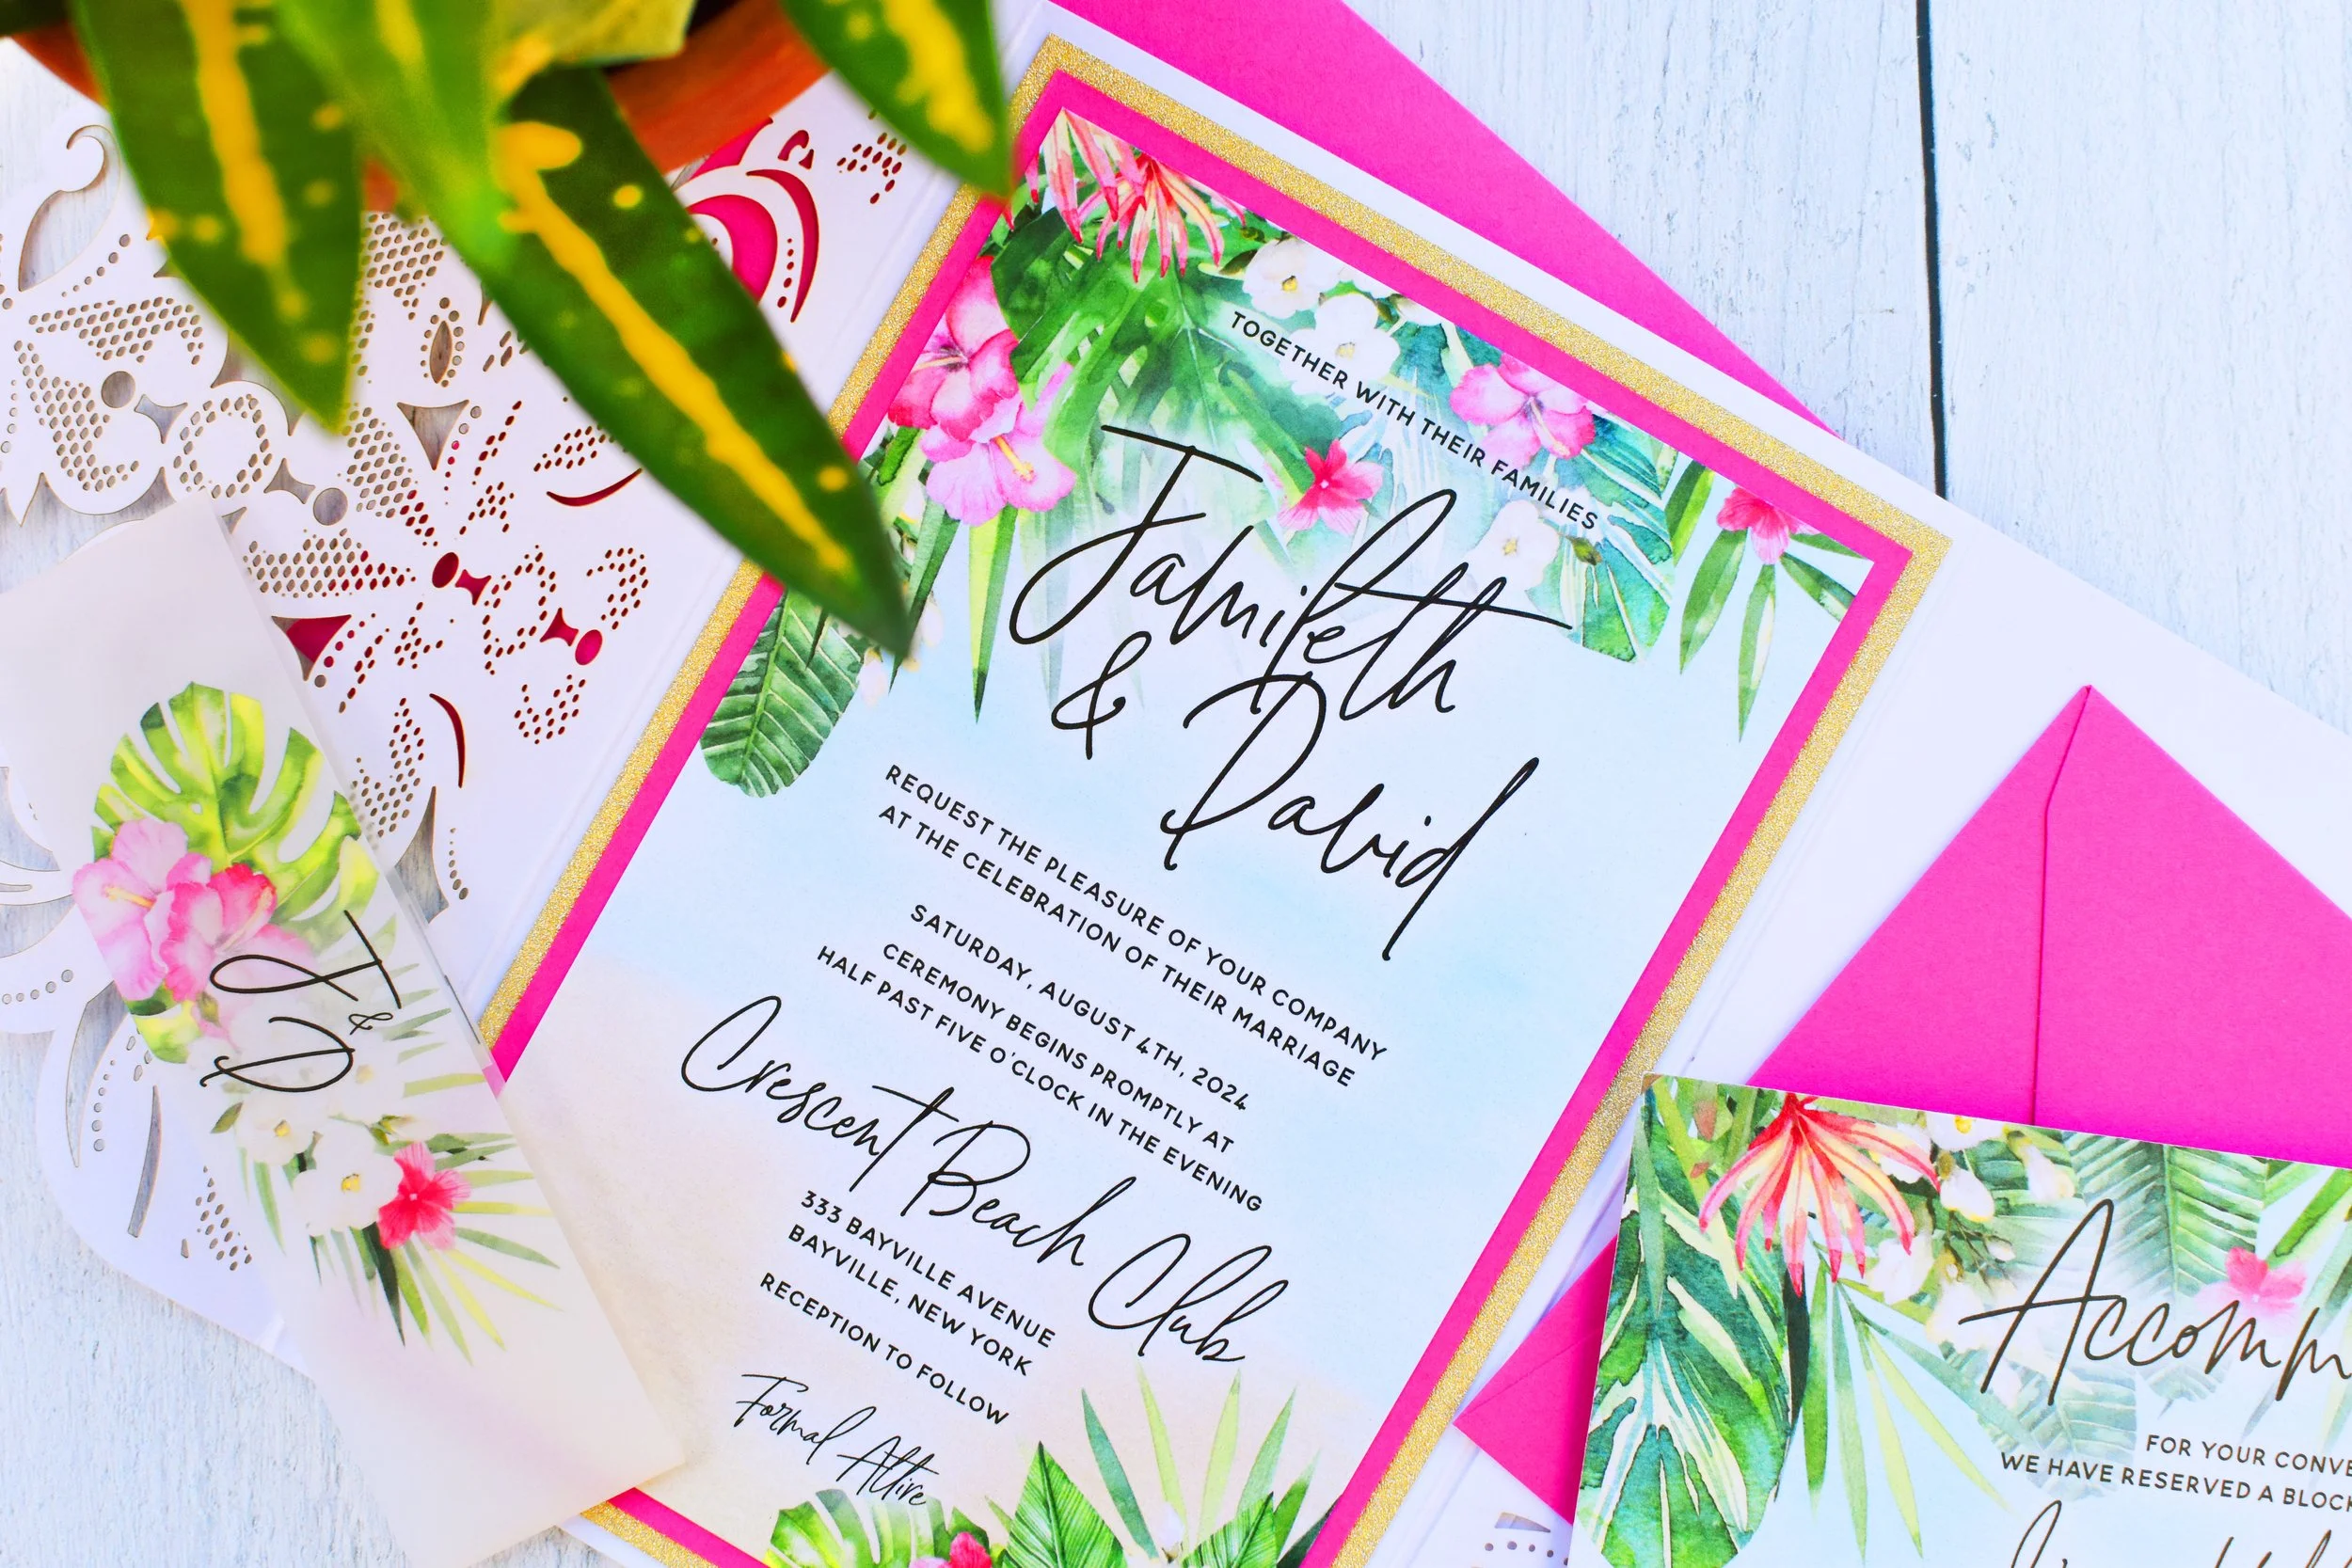 TOGETHER WITH THEIR FAMILIES
Jamileth
& David
REQUEST THE PLEASURE OF YOUR COMPANY
AT THE CELEBRATION OF THEIR MARRIAGE
SATURDAY, AUGUST 4TH, 2024
CEREMONY BEGINS PROMPTLY AT
HALF PAST FIVE O'CLOCK IN THE EVENING
Crescent Beach Club
333 BAYVILLE AVENUE
BAYVILLE, NEW YORK
RECEPTION TO FOLLOW
Formal Attire
J
&
D
Accomm
FOR YOUR CONVE
WE HAVE RESERVED A BLOCK